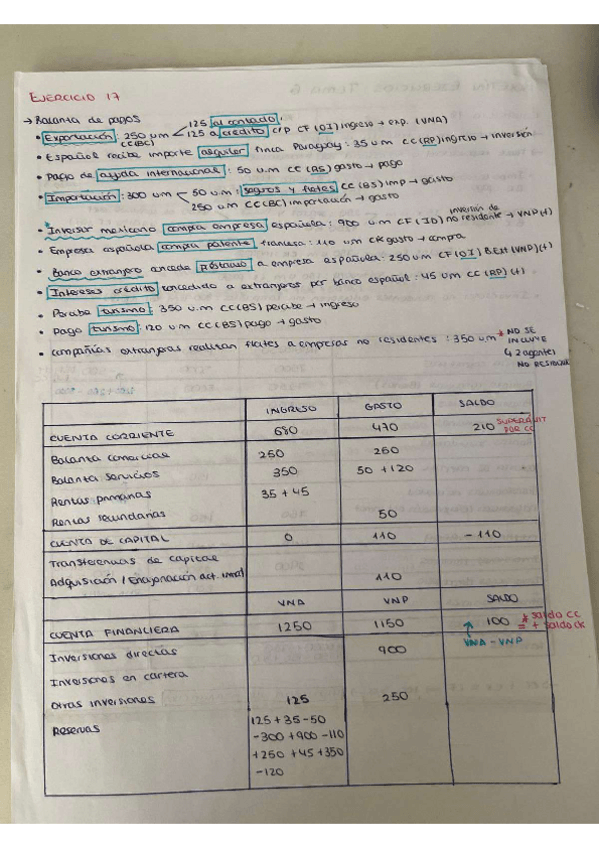 EJERCICIO 17
→ Balanza de pagos
125 al contado
• Exportación: 250 um 125 a crédito c/p CF (OI) ingreso → exp. (VNA)
CC(BC)
• Español recibe importe alquiler finca Paraguay: 35 u.m CC (RP) ingreso → inversión
• Pago de ayuda internacional: 50 u.m CC (RS) gasto → pago
• Importación: 300 um 50 u.m: seguros y fletes CC (BS) imp → gasto
250 um CC (BC) importación → gasto
inversión de
• Inversor mexicano compra empresa española: 900 um CF (ID) no residente → VNP(+)
• Empresa española compra patente francesa: 110 um CK gasto → compra
• Banco extranjero concede préstamo a empresa española: 250 um CF (OI) B.EXT (VNP) (+)
• Intereses crédito concedido a extranjeros por banco español: 45 u.m CC (RP) (+)
• Percibe turismo: 350 u.m CC (BS) percibe → ingreso
• Pago turismo: 120 u.m CC (BS) pago → gasto
• Compañías extranjeras realizan fletes a empresas no residentes: 350 um * NO SE
INCLUYE
↳ 2 agentes
NO RESIDEN
INGRESO GASTO SALDO
CUENTA CORRIENTE 680 470 210 SUPERÁVIT
POR CC
Balanza comercial 250 250
Balanza servicios 350 50 + 120
Rentas primarias 35 + 45
Rentas secundarias 50
CUENTA DE CAPITAL 0 110 - 110
Transferencias de capital
Adquisición / Enajenación act. 110
VNA VNP SALDO
CUENTA FINANCIERA 1250 1150 100 * saldo CC
= + saldo CK
VNA - VNP
Inversiones directas 900
Inversiones en cartera
Otras inversiones 125 250
Reservas 125 + 35 - 50
- 300 + 900 - 110
+ 250 + 45 + 350
- 120